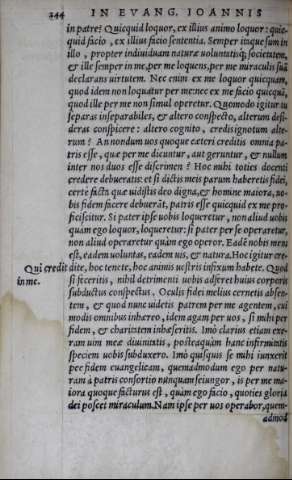 344 IN EVANG. IOANNIS
in patre? Quicquid loquor, ex illius animo loquor: quic-
quid facio, ex illius facio sententia. Semper itaque sum in
illo, propter indiuiduam naturæ voluntatisq; societatem,
& ille semper in me, per me loquens, per me miraculis suã
declarans uirtutem. Nec enim ex me loquor quicquam,
quod idem non loquatur per me: nec ex me facio quicquã,
quod ille per me non simul operetur. Quomodo igitur tu
separas inseparabiles, & altero conspecto, alterum desi-
deras conspicere: altero cognito, credis ignotum alte-
rum? An nondum uos quoque cæteri creditis omnia pa-
tris esse, quæ per me dicuntur, aut geruntur, & nullum
inter nos duos esse discrimen? Hoc mihi toties docenti
credere debueratis: et si dictis meis parum haberetis fidei,
certe facta quæ uidistis deo digna, & homine maiora, uo-
bis fidem facere debuerãt, patris esse quicquid ex me pro-
ficiscitur. Si pater ipse uobis loqueretur, non aliud uobis
quàm ego loquor, loqueretur: si pater per se operaretur,
non aliud operaretur quàm ego operor. Eadẽ nobis mens
est, eadem uoluntas, eadem uis, & natura. Hoc igitur cre-
Qui credit dite, hoc tenete, hoc animis uestris infixum habete. Quod
in me. si feceritis, nihil detrimenti uobis adferet huius corporis
subductus conspectus. Oculis fidei melius cernetis absen-
tem, & quod nunc uidetis patrem per me agentem, cui
modis omnibus inhæreo, idem agam per uos, si mihi per
fidem, & charitatem inhæseritis. Imò clarius etiam exe-
ram uim meæ diuinitatis, posteaquàm hanc infirmitatis
speciem uobis subduxero. Imò quisquis se mihi iunxerit
per fidem euangelicam, quemadmodum ego per natu-
ram à patris consortio nunquam seiungor, is per me ma-
iora quoque facturus est, quàm ego facio, quoties gloria
dei poscet miraculum. Nam ipse per uos operabor, quem-
admod